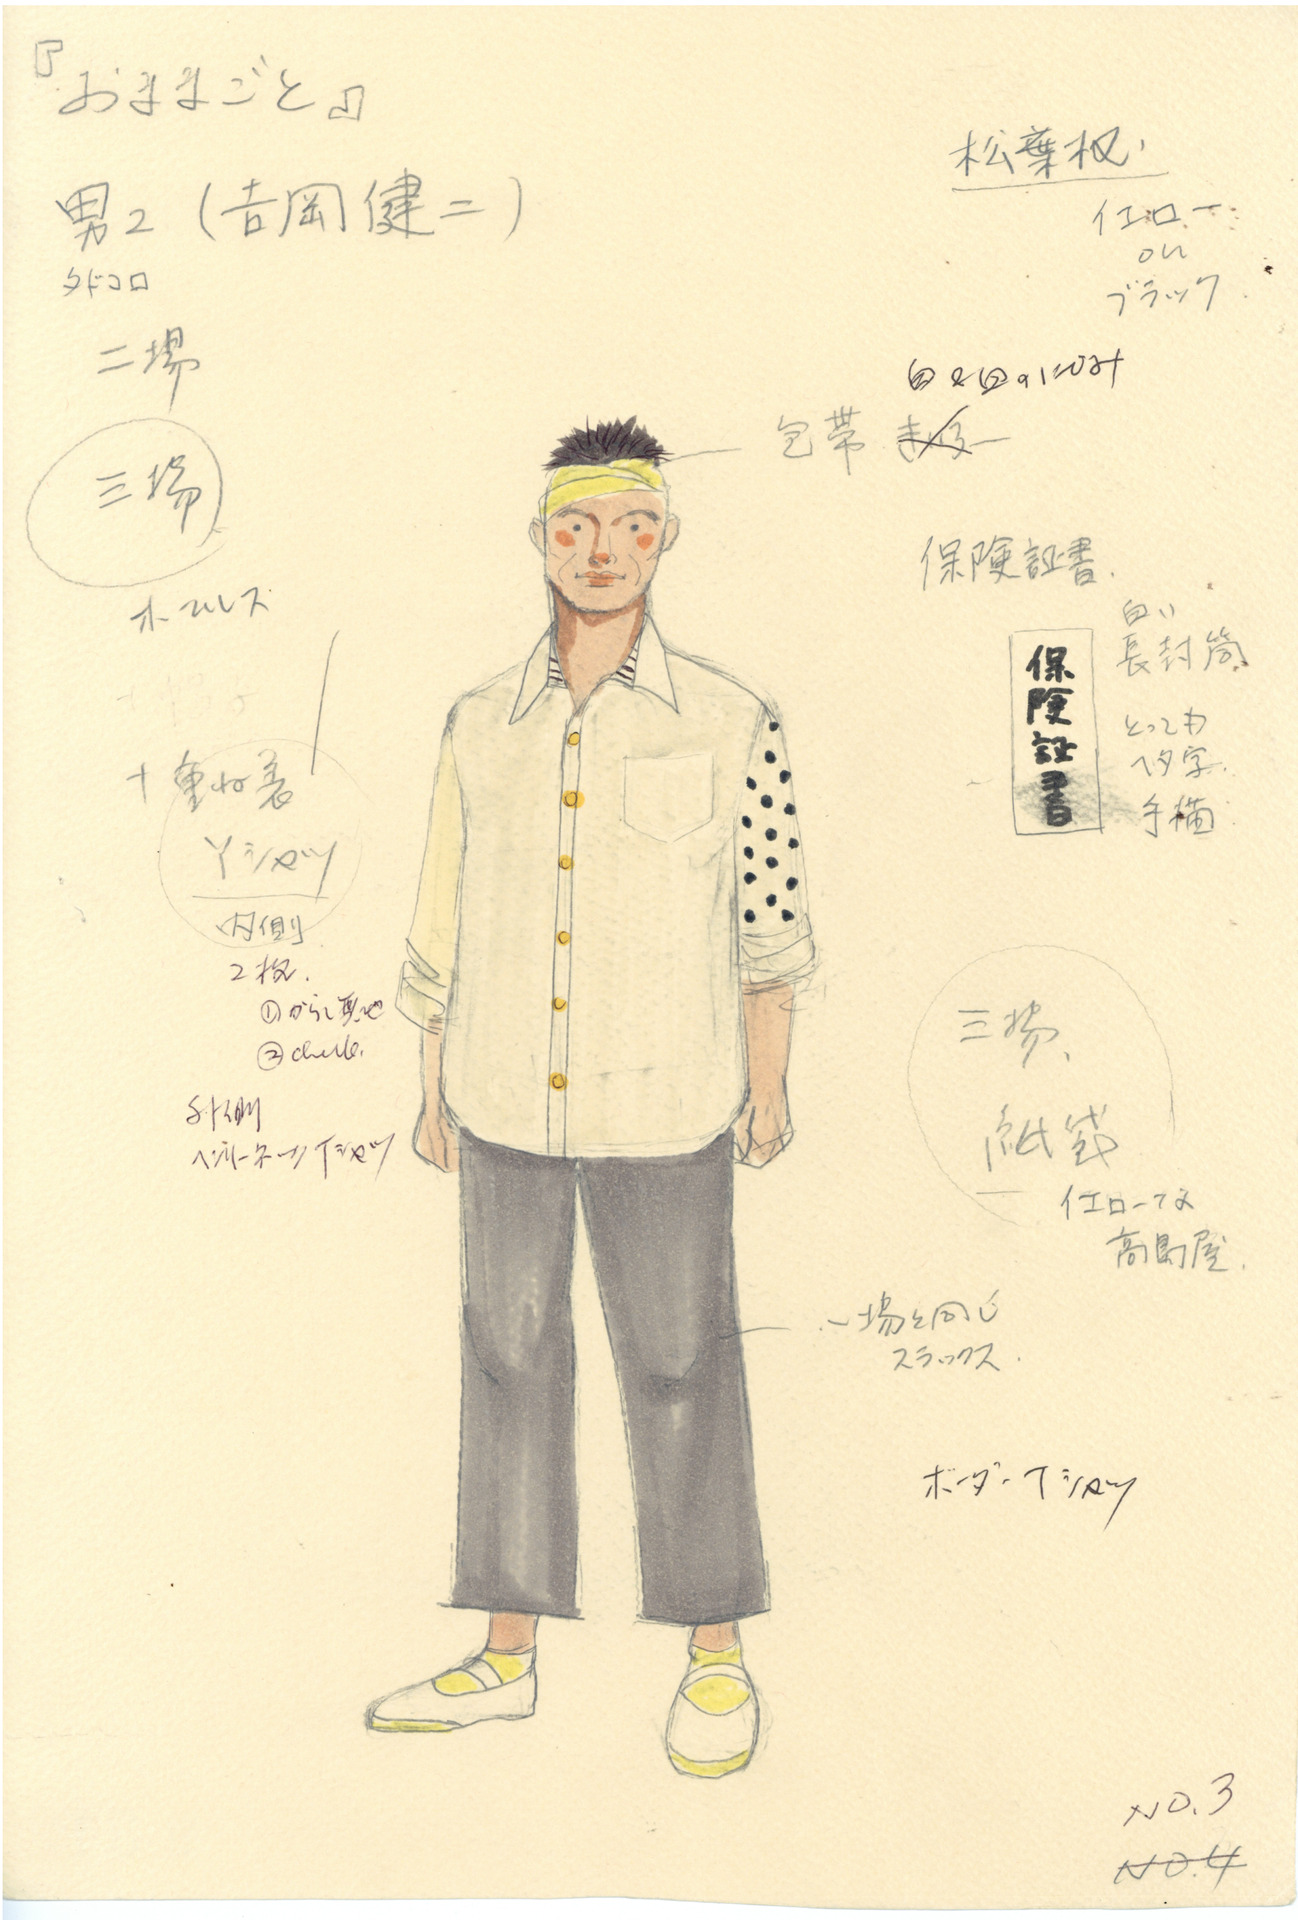 『おままごと』
男2（吉岡健二）
タドコロ
二場
三場
ホームレス
重ね着
Yシャツ
内側
2枚.
①からし無地
②
外側
ヘンリーネックTシャツ
松葉杖.
イエロー
on
ブラック
白 白のにじみ
包帯
保険証書.
保険証書
白い
長封筒
とっても
ヘタ字.
手描
三場、
紙袋
イエローな
高島屋.
一場と同じ
スラックス.
ボーダーTシャツ
NO.3
NO.4